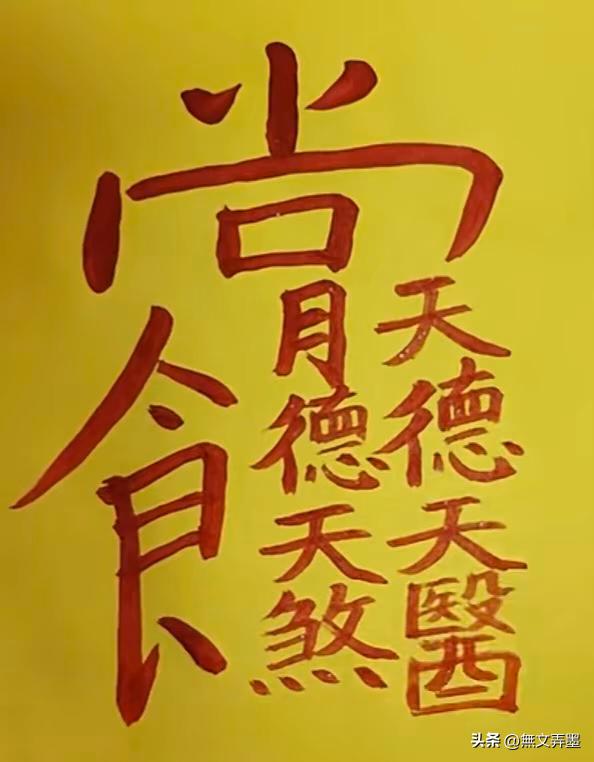 尚
天德天醫
月德天煞
食
头条 @無文弄墨